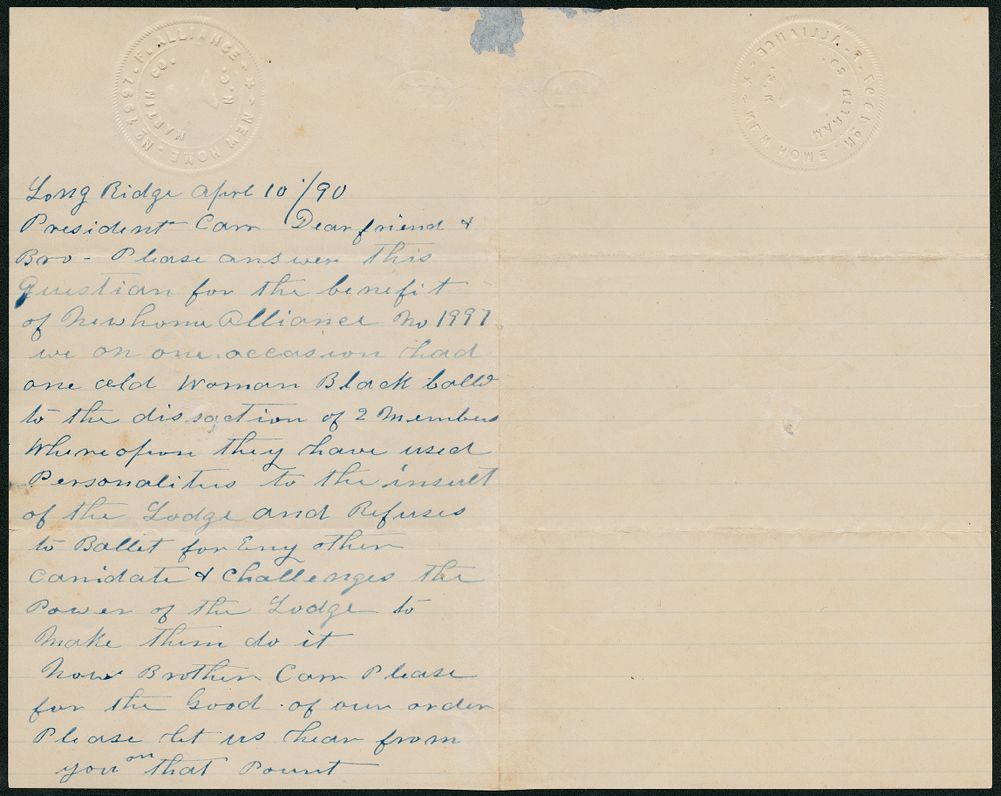 F. ALLIANCE · NEW HOME · No 1997 ·
MARTIN CO. N.C.
Long Ridge Aprl 10 /90
President Carr Dear friend &
Bro - Please answer this
Question for the benefit
of Newhome Alliance No 1997
we on one occasion had
one old Woman Black balld
to the dissaction of 2 Members
Whereopon they have used
Personalities to the insult
of the Lodge and Refuses
to Ballet for Eny other
Canidate & Challenges the
Power of the Lodge to
Make them do it
Now Brother Carr Please
for the Good of our order
Please let us hear from
you on that Pount